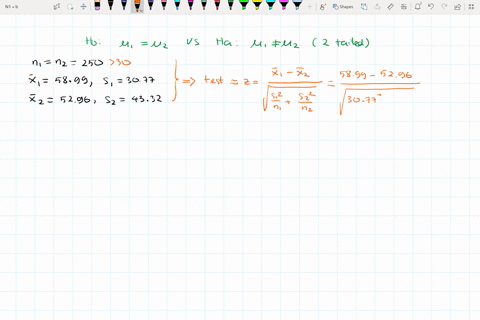 Ho: μ1 = μ2 vs Ha: μ1 ≠ μ2 (2 tailed)
n1 = n2 = 250 >30
x̄1 = 58.99, S1 = 30.77
x̄2 = 52.96, S2 = 43.32
=> test = z = x̄1 - x̄2 / √(S1²/n1 + S2²/n2) = 58.99 - 52.96 / √(30.77²